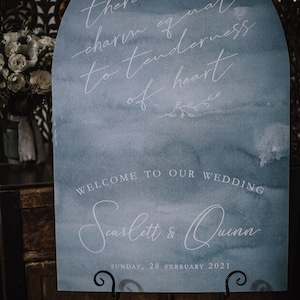 there
charm equal
to tenderness
of heart
WELCOME TO OUR WEDDING
Scarlett & Quinn
SUNDAY, 28 FEBRUARY 2021